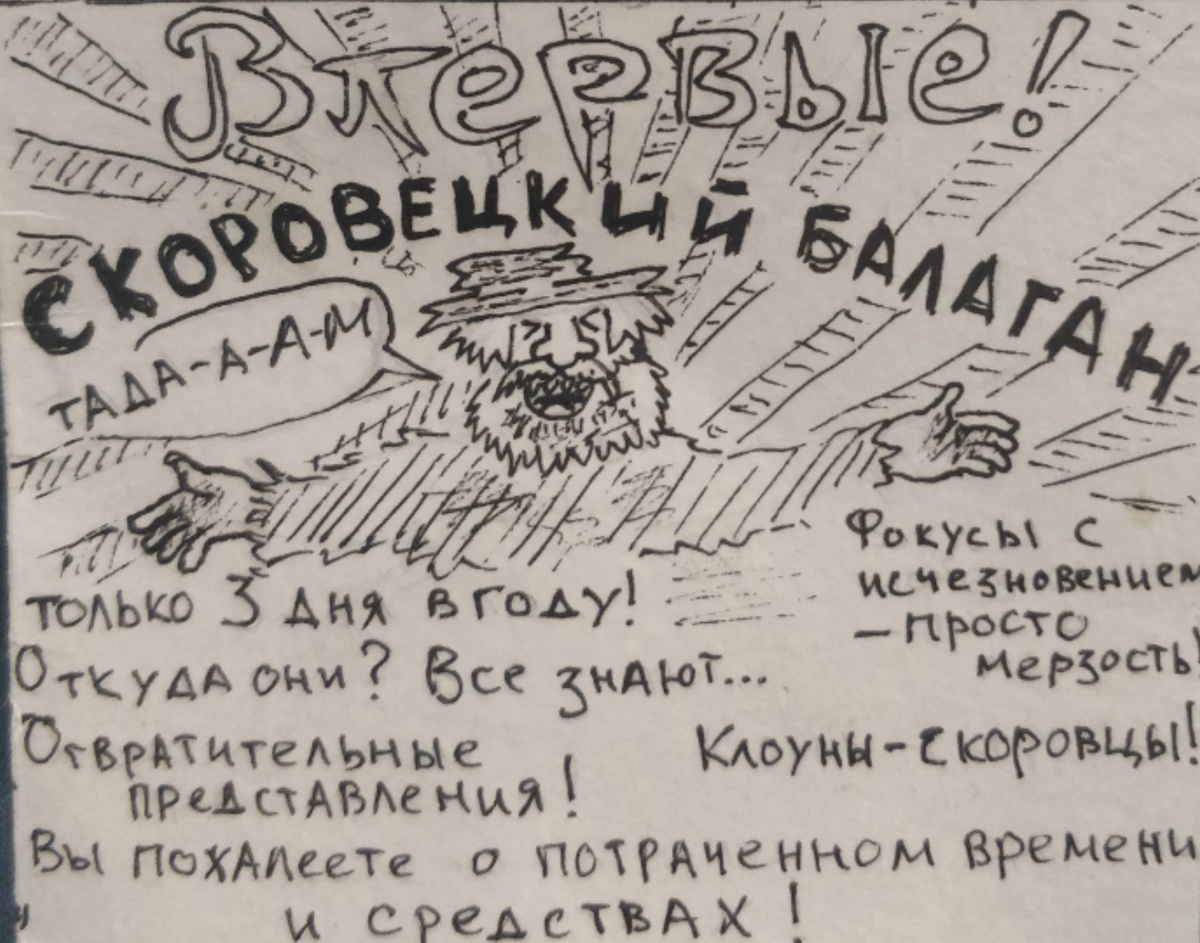 Впервые!
СКОРОВЕЦКИЙ БАЛАГАН
ТАДА-А-А-М
Фокусы с
исчезновением
– просто
мерзость!
только 3 дня в году!
Откуда они? Все знают...
Отвратительные
представления!
Клоуны-скоровцы!
Вы похалеете о потраченном времени
и средствах!